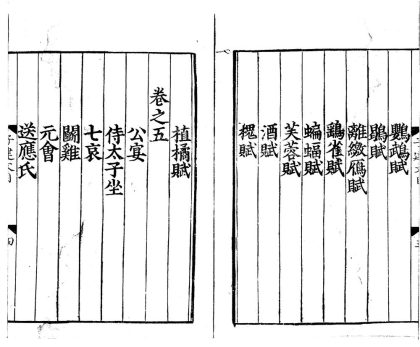 鸚鵡賦
鶡賦
離繳鴈賦
鷂雀賦
蝙蝠賦
芙蓉賦
酒賦
槐賦
植橘賦
卷之五
公宴
侍太子坐
七哀
鬬雞
元會
送應氏
四